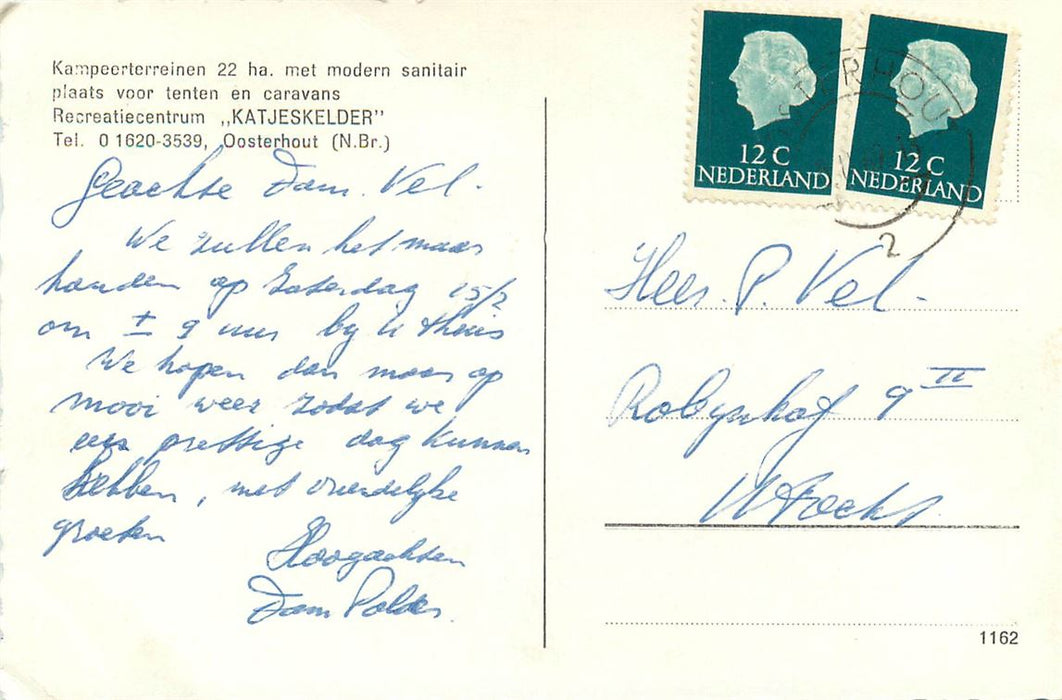 Kampeerterreinen 22 ha. met modern sanitair
plaats voor tenten en caravans
Recreatiecentrum „KATJESKELDER”
Tel. 0 1620-3539, Oosterhout (N.Br.)
Geachte Fam. Vel.
We zullen het maar
houden op Zaterdag 15/2
om ± 9 uur by U thuis
We hopen dan maar op
mooi weer zodat we
een prettige dag kunnen
hebben, met vriendelyke
groeten
Hoogachten
Fam Polder.
12 C
NEDERLAND
12 C
NEDERLAND
OOSTERHOUT
2
Heer. P. Vel.
Robynhof 9 II
Utrecht.
1162